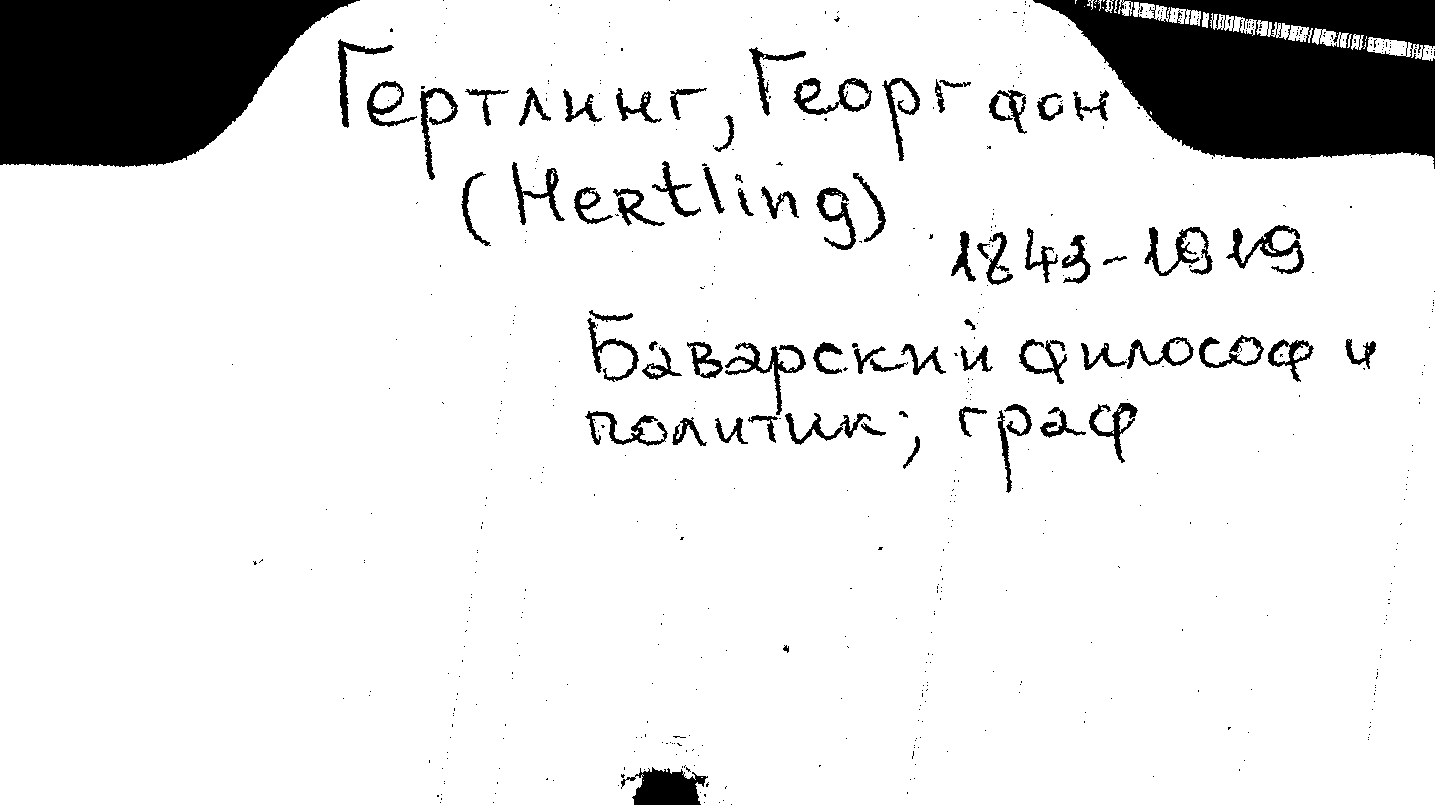 Гертлинг, Георг фон
(Hertling)
1843-1919
Баварский философ и
политик; граф